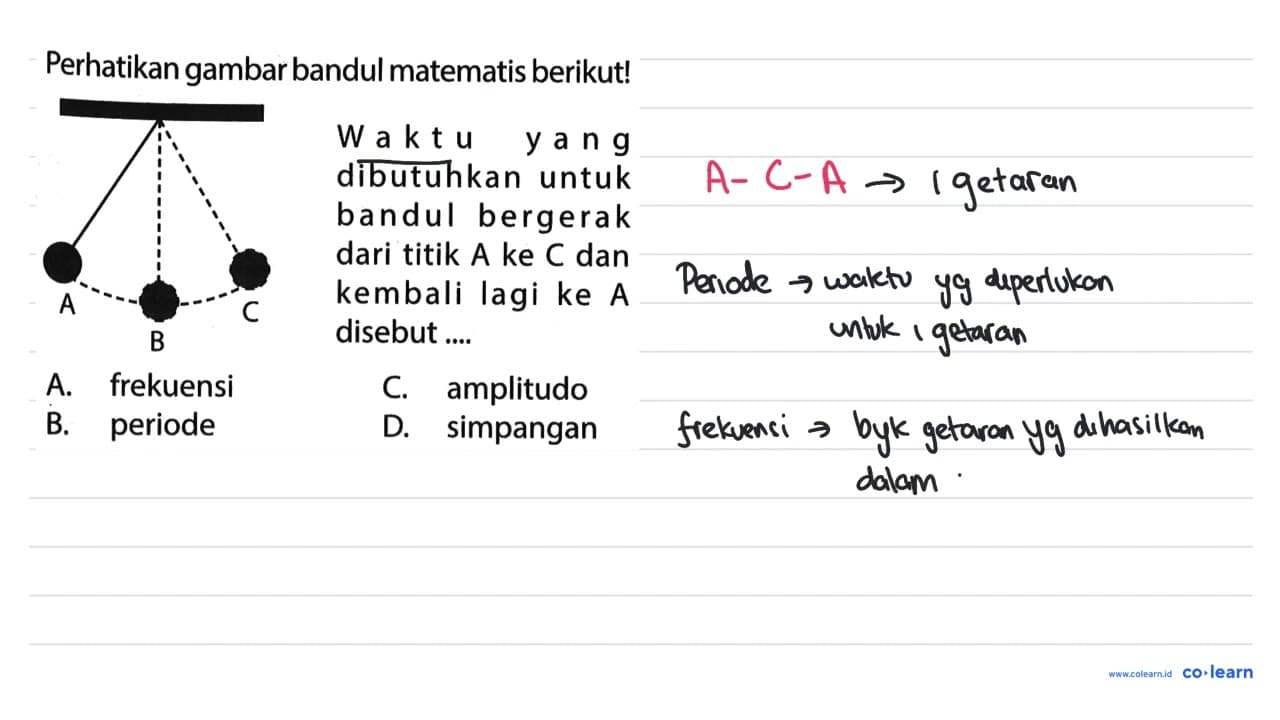 Perhatikan gambar bandul matematis berikut!
Waktu yang
dibutuhkan untuk
bandul bergerak
dari titik A ke C dan
kembali lagi ke A
disebut ....
A
B
C
A. frekuensi
B. periode
C. amplitudo
D. simpangan
A - C - A → 1 getaran
Periode → waktu yg diperlukan
untuk 1 getaran
frekuensi → byk getaran yg dihasilkan
dalam
www.colearn.id co·learn